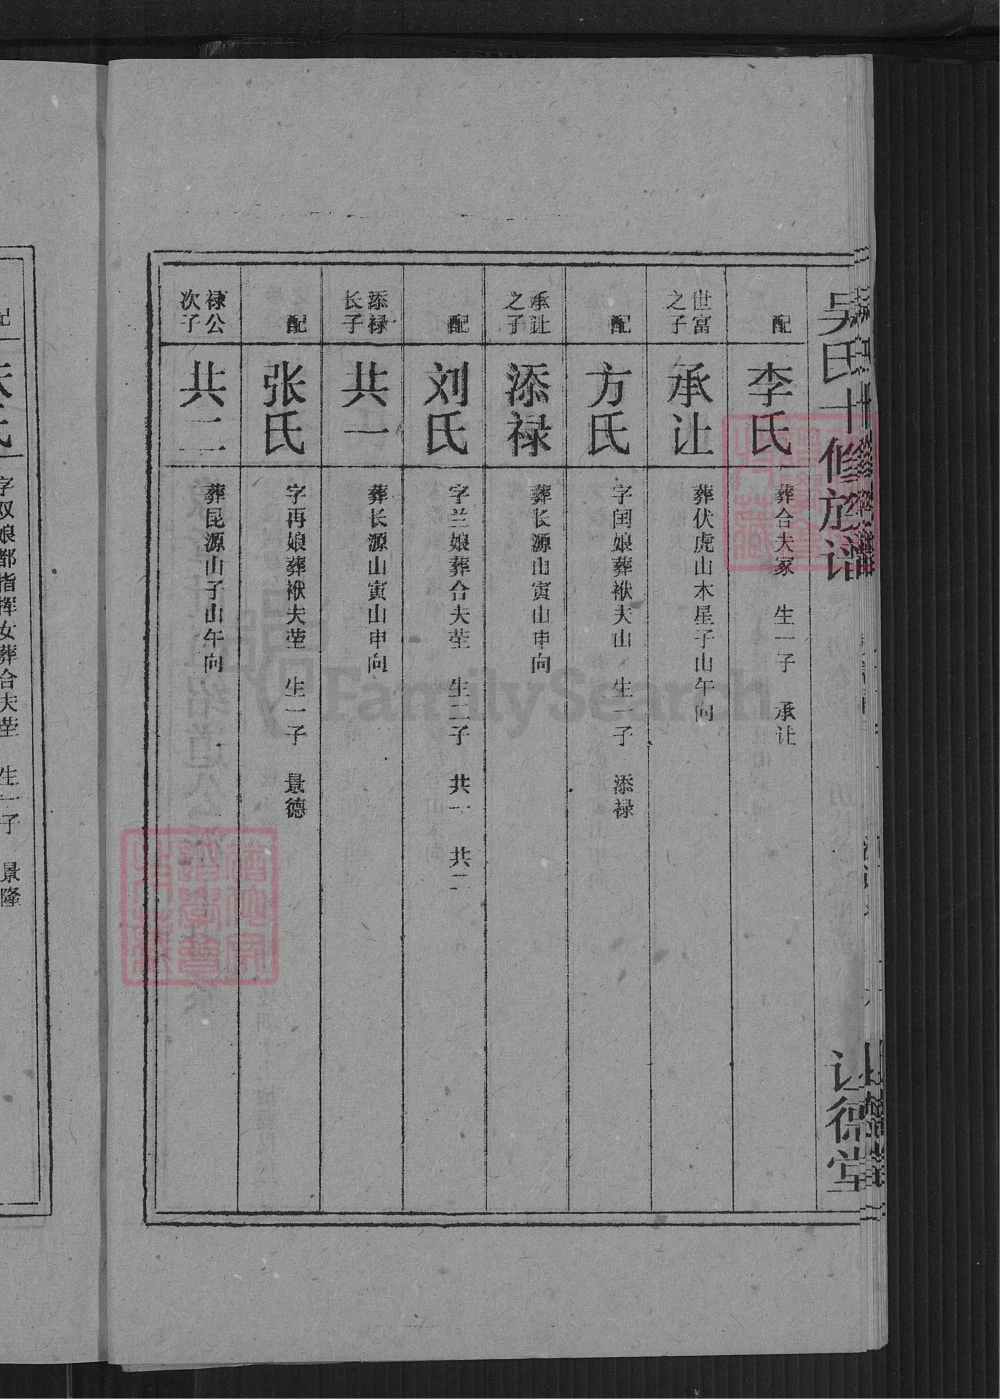 吴氏十修族谱
让德堂
配
李氏
葬合夫冢 生一子 承让
世富之子
承让
葬伏虎山木星子山午向
配
方氏
字闰娘葬袱夫山 生一子 添禄
承让之子
添禄
葬长源山寅山申向
配
刘氏
字兰娘葬合夫茔 生二子 共一 共二
添禄长子
共一
葬长源山寅山申向
配
张氏
字再娘葬袱夫茔 生一子 景德
禄公次子
共二
葬昆源山子山午向
配
字双娘都指挥女葬合夫茔 生一子 景隆
FamilySearch